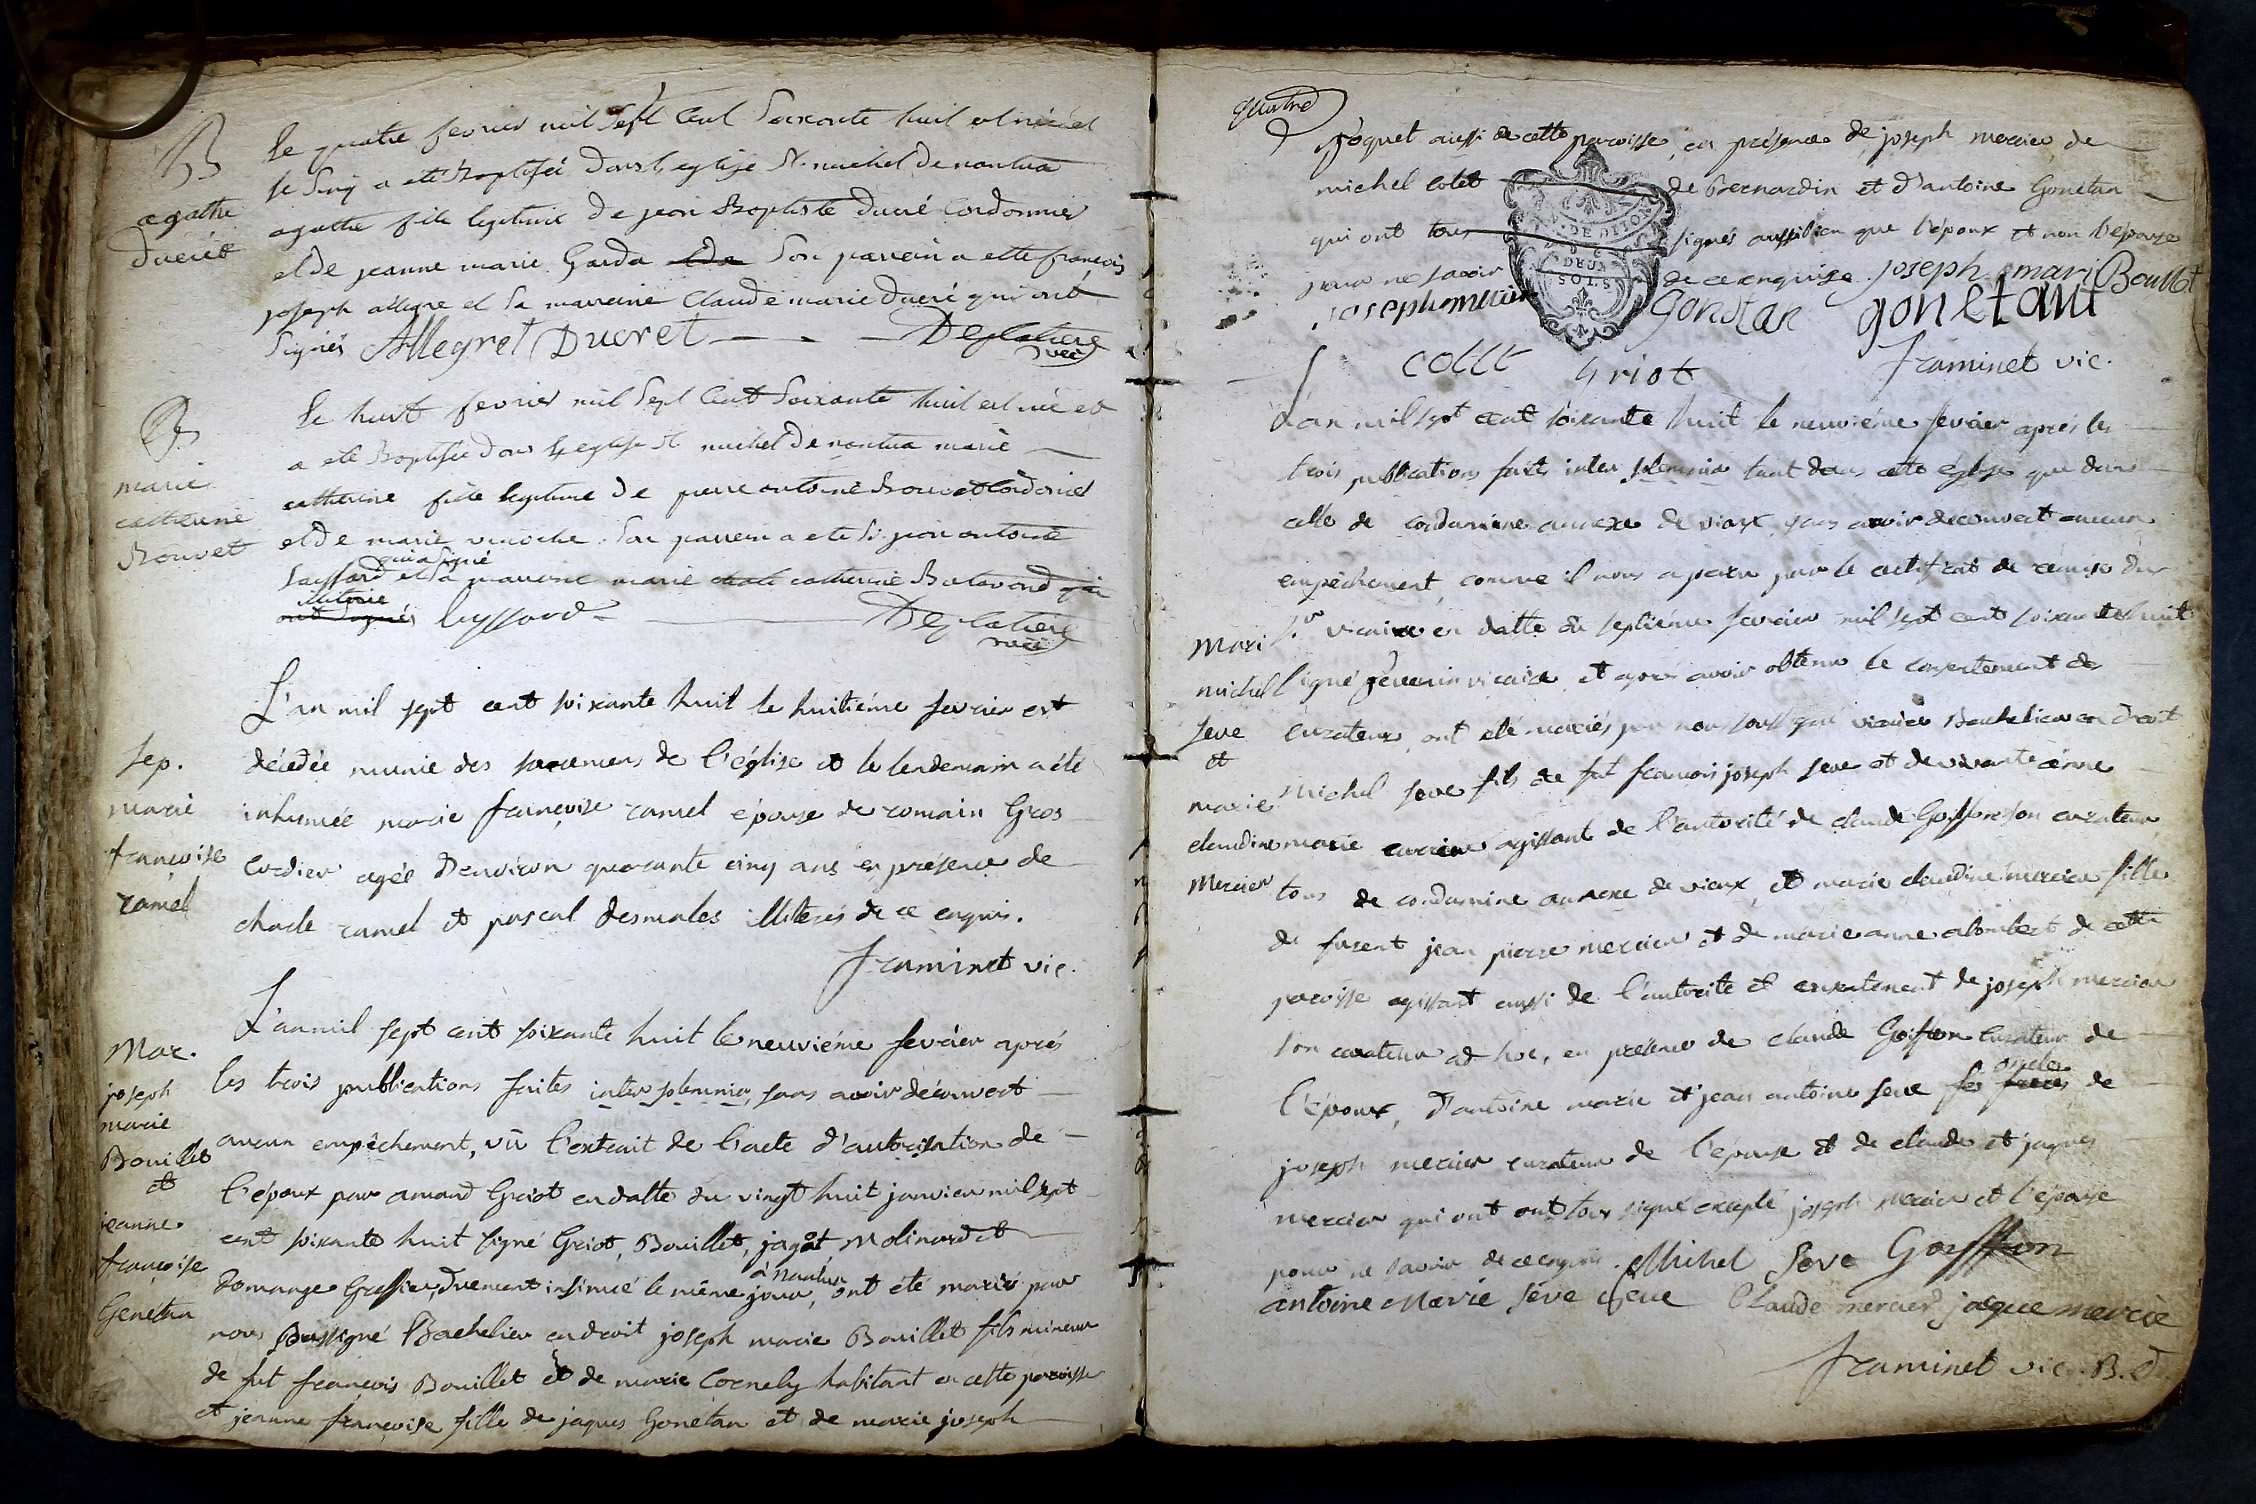 B
agathe
ducret
le quatre fevrier mil sept cent soixante huit est née et
le cinq a eté Baptisée dans l'eglise St. michel de nantua
agathe fille legitime de jean Baptiste ducré Cordonnier
et de jeanne marie Garda son parrein a etté françois
joseph allegre et sa marreine Claude marie ducré qui ont
signés Allegret Ducret Deglatiere
vice
B
marie
catherine
Bouvet
le huit fevrier mil sept Cent soixante huit est née et
a eté Baptisée dans l'eglise St michel de nantua marie
catherine fille legitime de pierre antoine Bouvet Cordonier
et de marie son parrein a eté Sr. jean antoine
qui a signé
et sa marreine marie catherine qui
illiterée
ont signés Deglatiere
vice
Sep.
marie
françoise
ramel
L'an mil sept cent soixante huit le huitiéme fevrier est
décédée munie des sacremens de l'église et le lendemain a été
inhumée marie françoise ramel épouse de romain Gros
cordier agée d'environ quarante cinq ans en présence de
charle ramel et pascal desmales illiterés de ce enquis.
framinet vic.
Mar.
joseph
marie
Bouillet
et
jeanne
françoise
Gonetan
L'an mil sept cent soixante huit le neuviéme fevrier aprés
les trois publications faites inter solemnia, sans avoir découvert
aucun empêchement, vû l'extrait de l'acte d'autorisation de
l'époux par amand Griot en datte du vingt huit janvier mil sept
cent soixante huit signé Griot, Bouillet, jagot, Molinard et
à nantua
Domange Greffier, duement insinué le même jour, ont été mariés par
nous soussigné Bachelier en droit joseph marie Bouillet fils mineur
de fut françois Bouillet et de marie Cornely habitant en cette paroisse
et jeanne françoise fille de jaques Gonetan et de marie joseph
quatre
joquet aussi de cette paroisse, en présence de joseph mercier de
michel colet de Bernardin et d'antoine Gonetan
qui ont tous signés aussibien que l'époux et non l'épouse
pour ne savoir de ce enquise. joseph mari Boullet
DE DIJON
DEUX
SOLS
joseph mercier gonetan gonetant
colet Griot framinet vic.
Mari
michel
seve
et
marie
claudine
Mercier
L'an mil sept cent soixante huit le neuviéme fevrier aprés les
trois publications faites inter solemnia tant dans cette église que dans
celle de condamine annexe de vieux, sans avoir decouvert aucun
empêchement, comme il nous a paru par le certificat de remise du
Sr. vicaire en datte du septiéme fevrier mil sept cent soixante huit
signé vicaire, et aprés avoir obtenu le consentement des
curateurs, ont été mariés par nous soussigné vicaire Bachelier en droit
Michel seve fils de fut francois joseph seve et de vivante anne
marie agissant de l'autorité de claude Goiffon son curateur,
tous de condamine annexe de vieux, et marie claudine mercier fille
de fusent jean pierre mercier et de marie anne alombert de cette
paroisse agissant aussi de l'autorité et consentement de joseph mercier
son curateur ad hoc, en présence de claude Goiffon curateur de
l'époux, d'antoine marie et jean antoine seve ses oncles freres de
joseph mercier curateur de l'épouse et de claude et jaques
mercier qui ont ont tous signé excepté joseph mercier et l'épouse
pour ne savoir de ce enquis. Michel Seve Goiffon
antoine Marie seve seve Claude mercier jacque mercie
framinet vic. B. D.